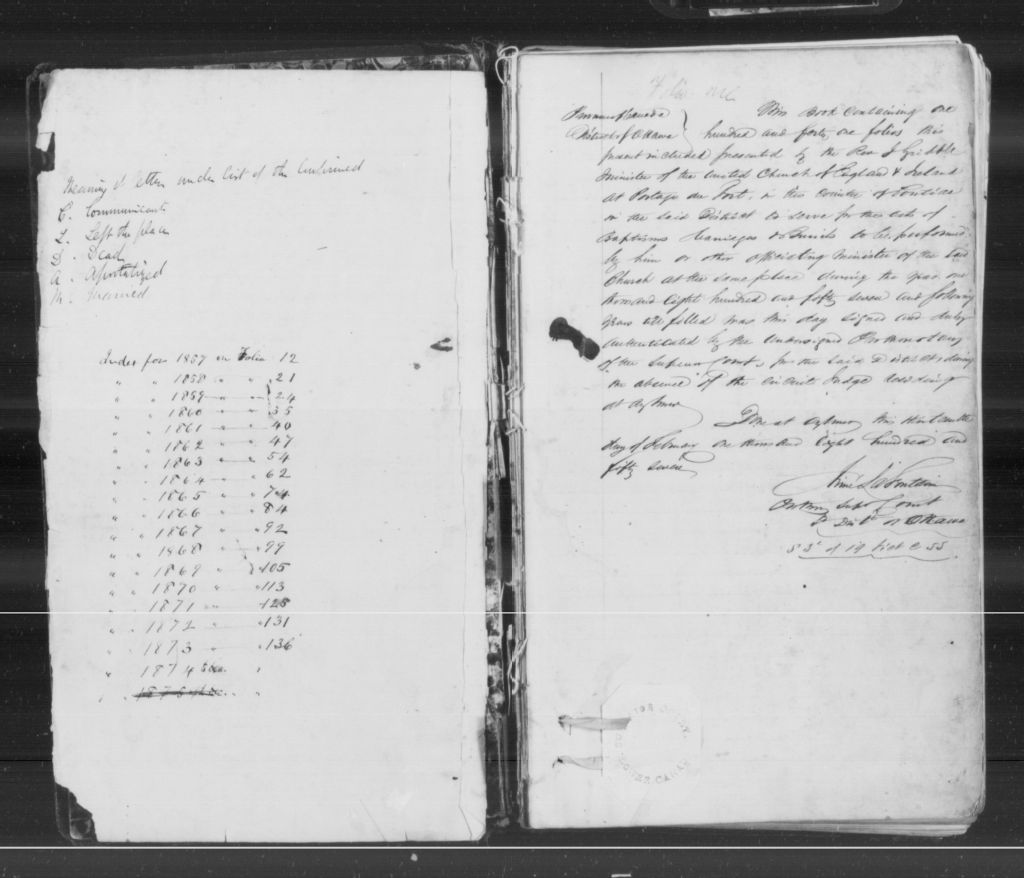 Meaning of letters under list of the Confirmed
C. Communicants
L. Left the place
D. Dead
A. Apostatized
M. Married
Index for 1857 on Folio 12
" " 1858 " " 21
" " 1859 " " 24
" " 1860 " " 35
" " 1861 " " 40
" " 1862 " " 47
" " 1863 " " 54
" " 1864 " " 62
" " 1865 " " 74
" " 1866 " " 84
" " 1867 " " 92
" " 1868 " " 99
" " 1869 " " 105
" " 1870 " " 113
" " 1871 " " 125
" " 1872 " " 131
" " 1873 " " 136
" " 1874 "
" " 1875 "
Folio one
Province of Canada } This Book Containing one
District of Ottawa } hundred and forty one folios this
present included presented by the Rev J Gribble
Minister of the United Church of England & Ireland
at Portage du Fort, in the County of Pontiac
in the said District to serve for the acts of
Baptisms Marriages & Burials to be performed
by him or other officiating Minister of the said
Church at the same place during the year one
thousand eight hundred and fifty seven and following
years till filled was this day signed and duly
authenticated by the undersigned Prothonotary
of the Superior Court, for the said District, during
the absence of the Circuit Judge residing
at Aylmer
Done at Aylmer this
day of February one thousand Eight hundred and
fifty seven
Lafontaine
Sup. Court
Dist. of Ottawa
of 19 Vict C 55